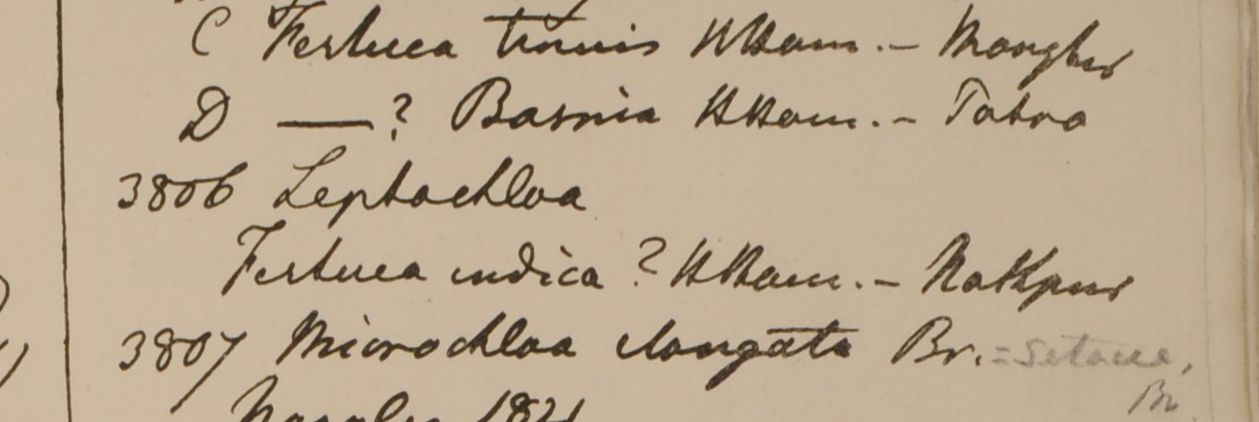 C Festuca tenuis HHam. - Monghir
D —? Basnia HHam. - Tatra
3806 Leptochloa
Festuca indica ? HHam. - Nathpur
3807 Microchloa elongata Br. = setacea,
Br
1821